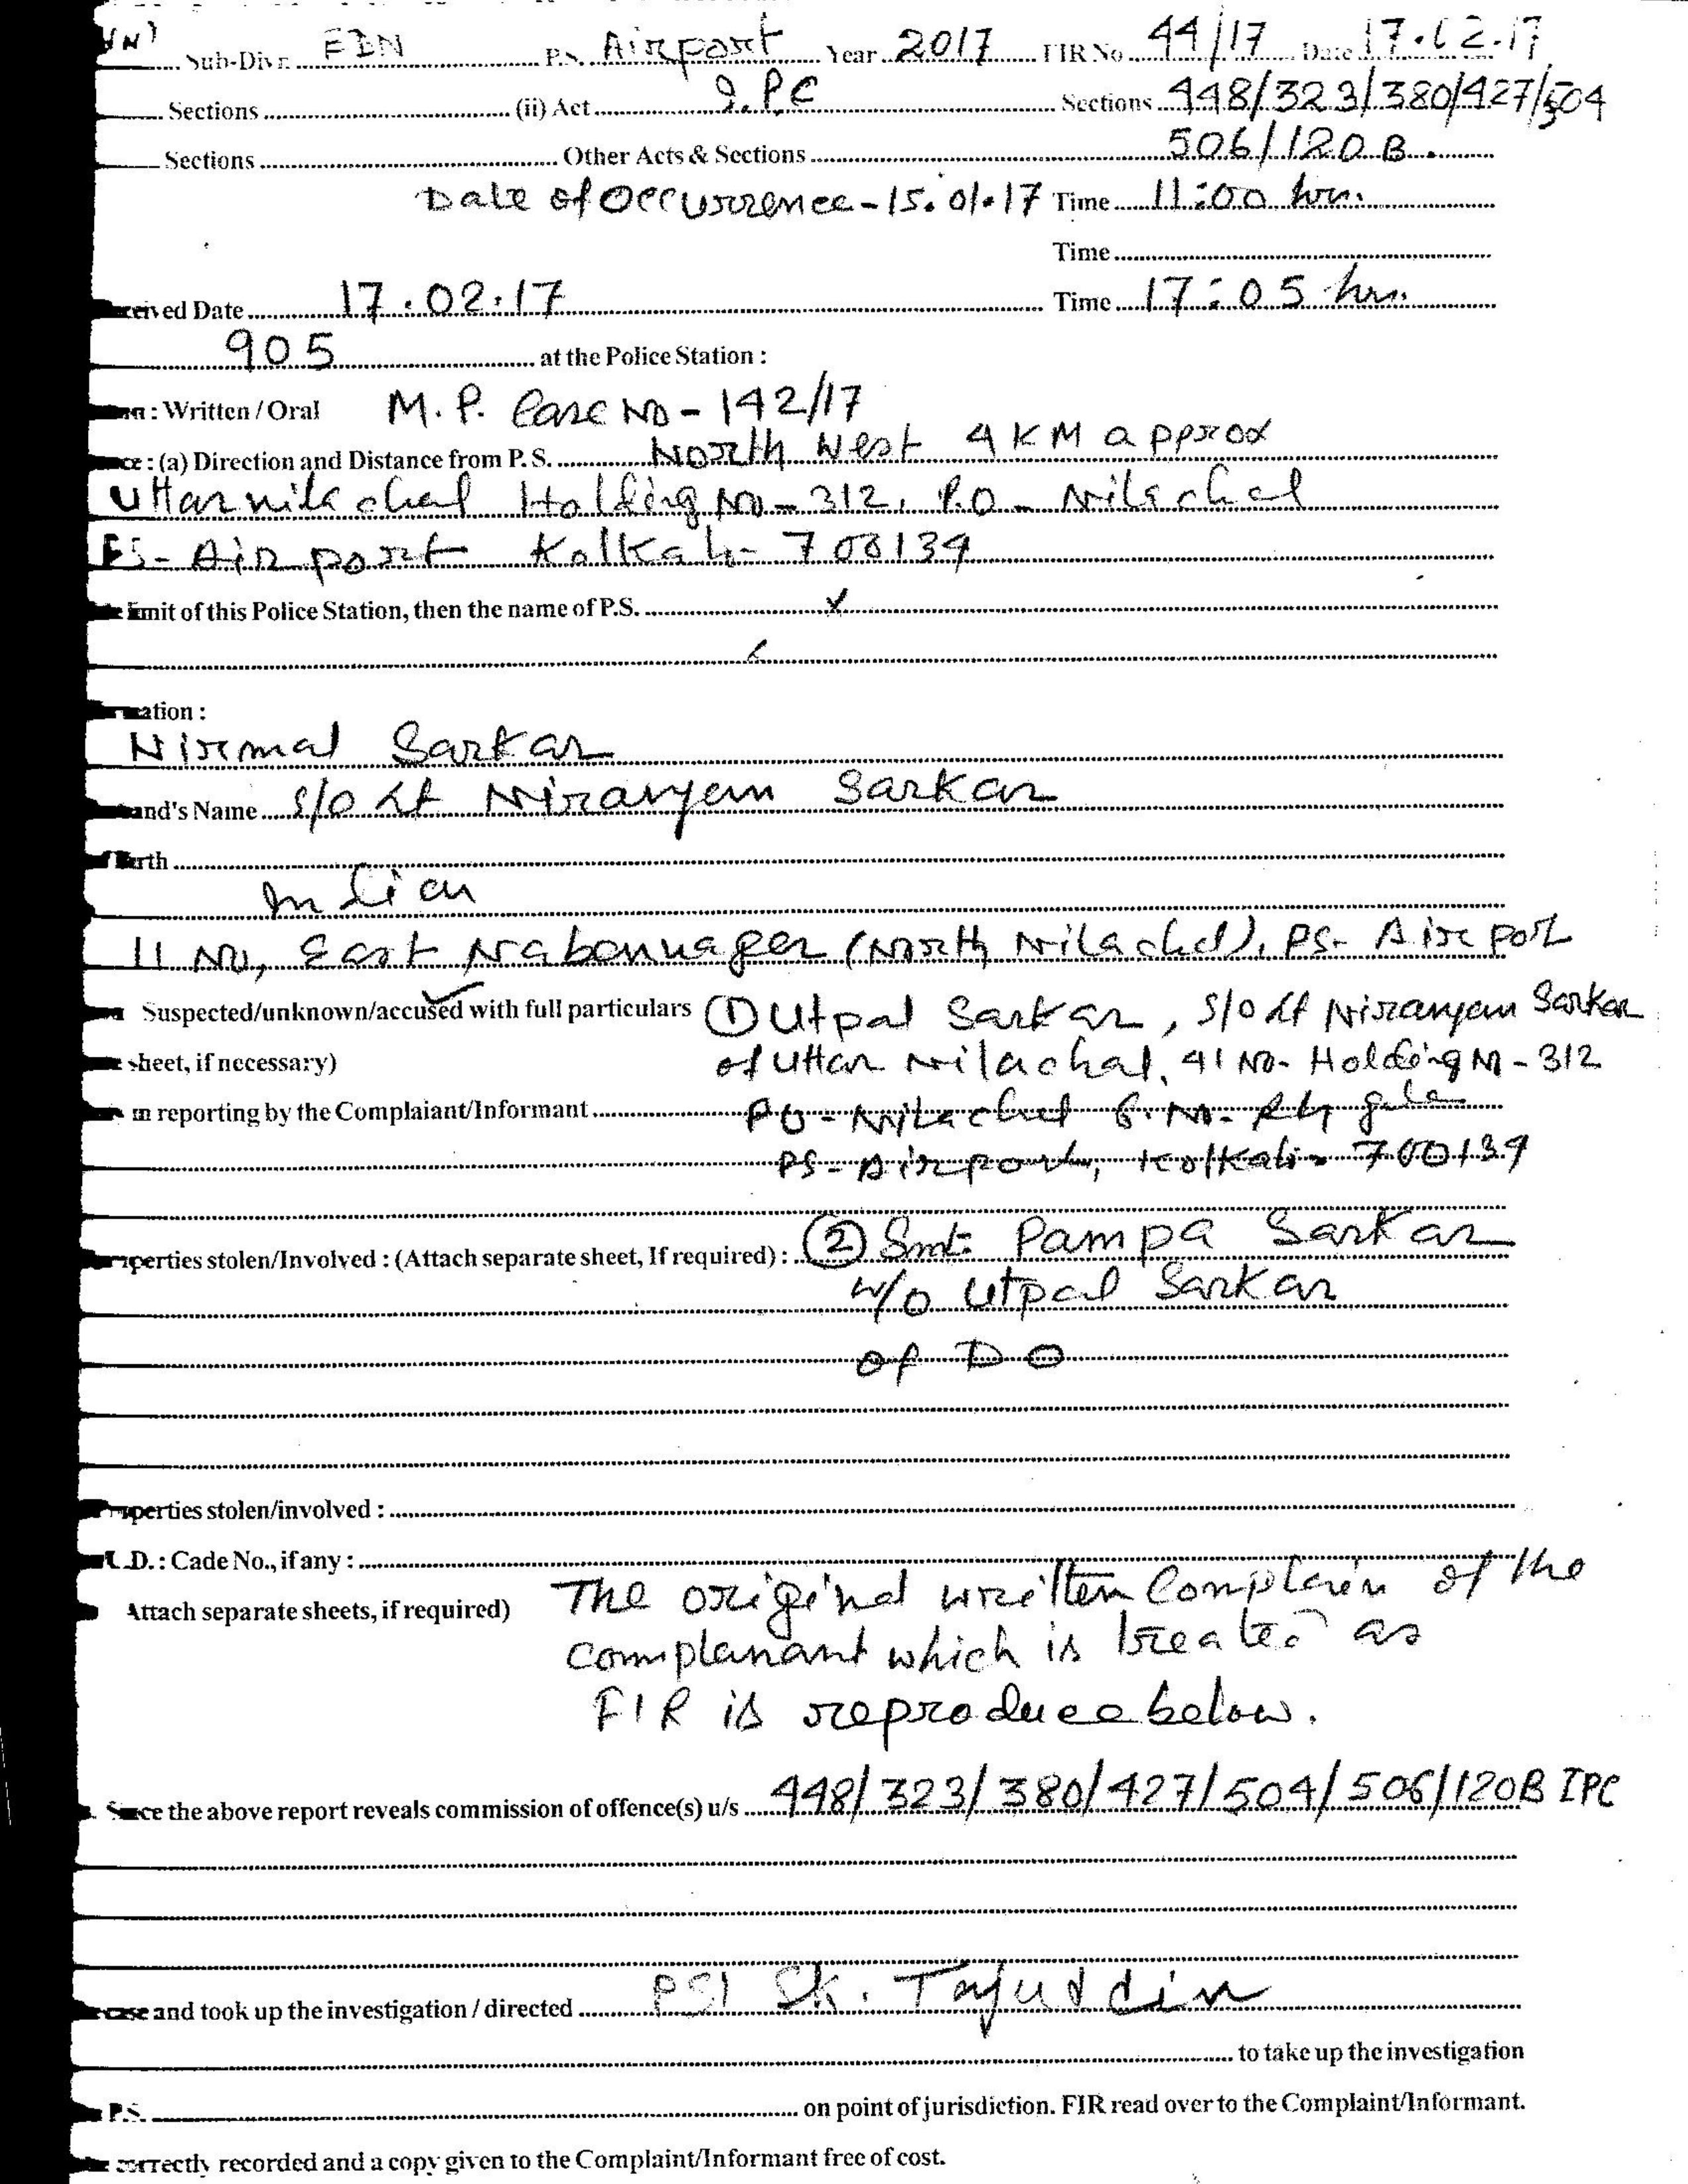 Sub-Divn. EDN P.S. Airport Year 2017 FIR No. 44/17 Date 17.02.17
Sections (ii) Act I.P.C Sections 448/323/380/427/504
Sections Other Acts & Sections 506/120B.
Date of Occurrence - 15.01.17 Time 11:00 hrs.
Time
Date 17.02.17 Time 17:05 hrs.
905 at the Police Station :
: Written / Oral M.P. Case No - 142/17
: (a) Direction and Distance from P. S. North West 4 KM approx
Uttarnilachal Holding No - 312, P.O - Nilachal
PS - Airport Kolkata - 700134
limit of this Police Station, then the name of P.S.
Nirmal Sarkar
Name S/O Lt Niranjan Sarkar
Indian
11 No, East Nabannagar (North Nilachal), PS- Airport
Suspected/unknown/accused with full particulars (1) Utpal Sarkar, S/O Lt Niranjan Sarkar
sheet, if necessary) of Uttar Nilachal, 41 No- Holding No - 312
in reporting by the Complaiant/Informant PO - Nilachal 6 No - Rly gate
PS - Airport, Kolkata - 700134
stolen/Involved : (Attach separate sheet, If required) : (2) Smt. Pampa Sarkar
W/O Utpal Sarkar
of DO
stolen/involved :
U.D. : Cade No., if any :
Attach separate sheets, if required) The original written Complain of the
complanant which is treated as
FIR is reproduce below.
the above report reveals commission of offence(s) u/s 448/323/380/427/504/506/120B IPC
case and took up the investigation / directed PSI Sk. Tajuddin
to take up the investigation
P.S. on point of jurisdiction. FIR read over to the Complaint/Informant.
correctly recorded and a copy given to the Complaint/Informant free of cost.